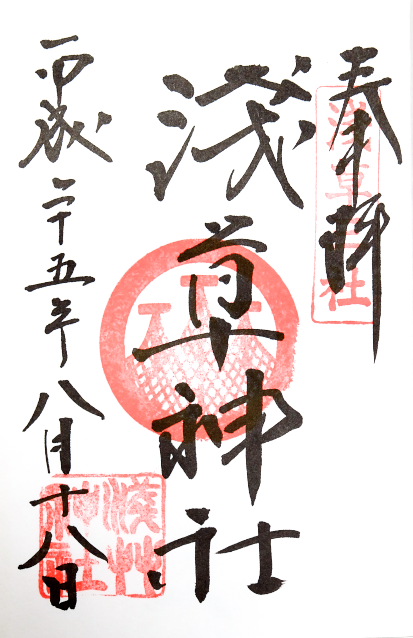 奉拝
浅草三社
浅草神社
平成二十五年八月十八日
浅草神社